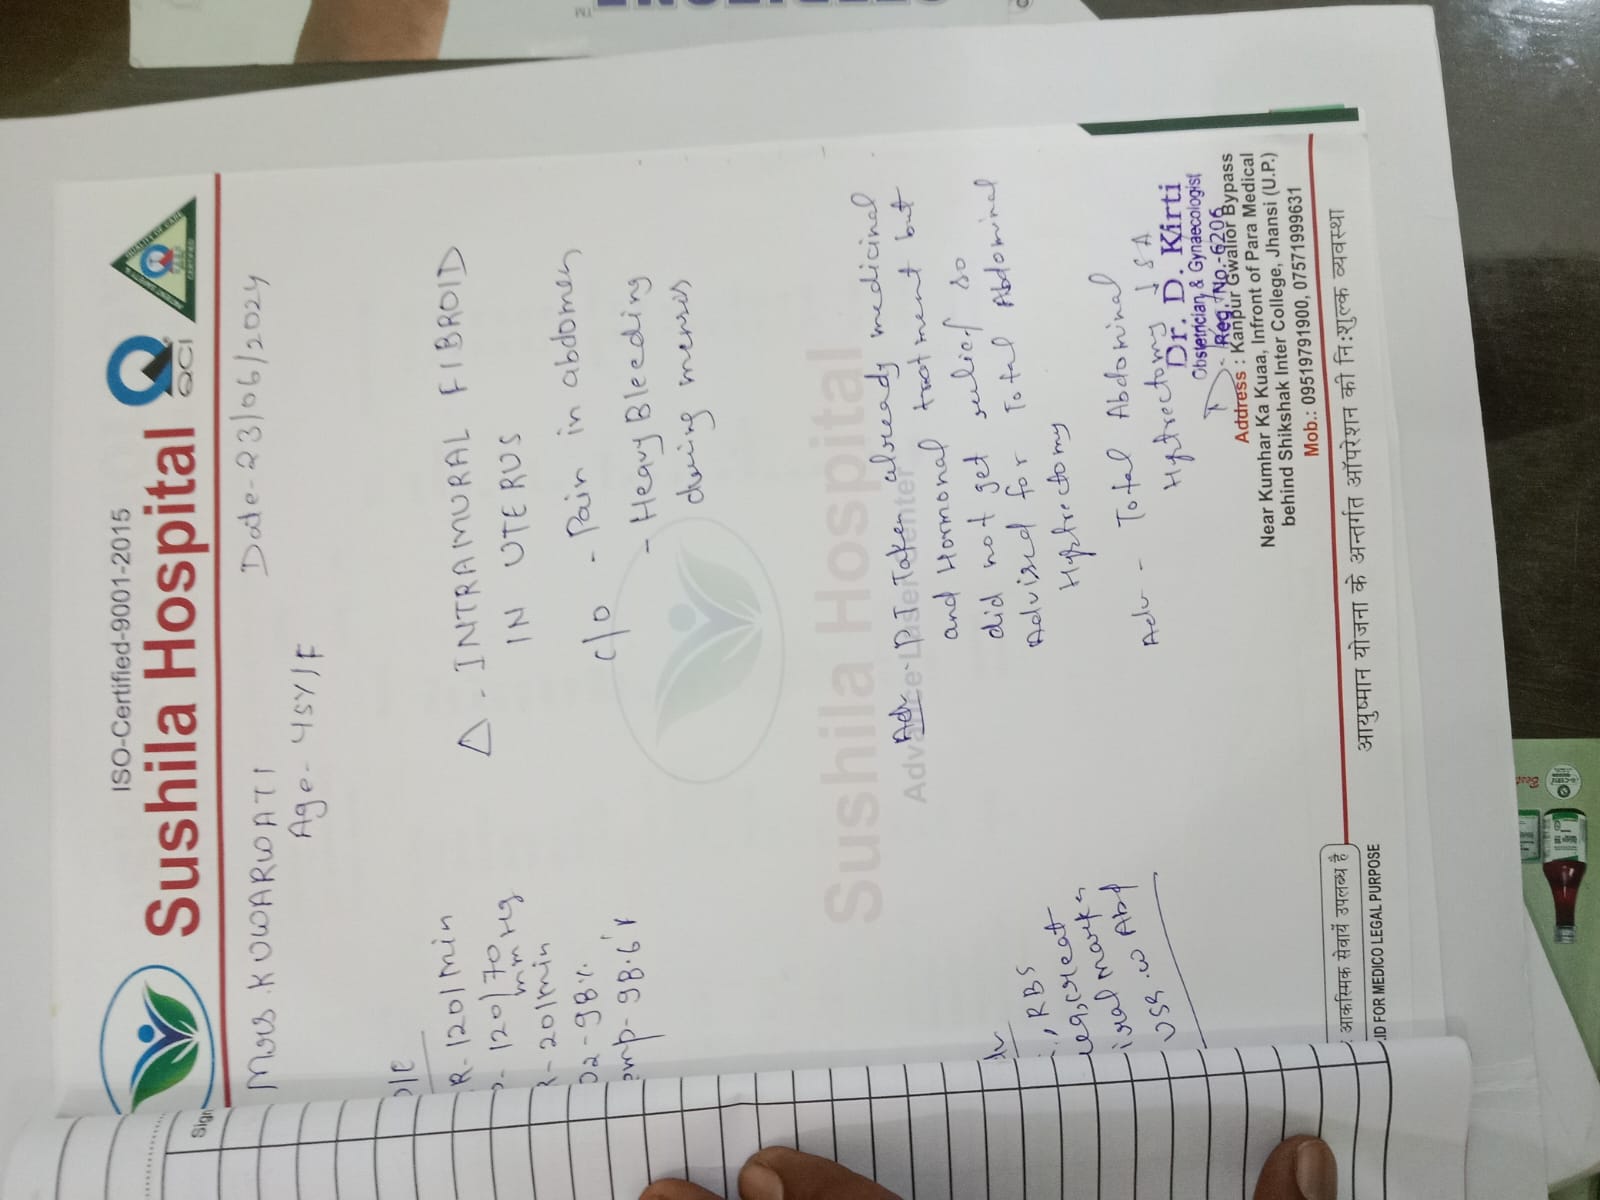 ISO-Certified-9001-2015
Sushila Hospital
QCI
Mrs. KUWARWATI
Date-23/06/2024
Age- 45Y/F
O/E
R-120/min
- 120/70
mmHg
R- 20/min
O2-98%
emp- 98.6°F
Δ - INTRAMURAL FIBROID
IN UTERUS
C/O - Pain in abdomen
- Heavy Bleeding
during menses
Sushila Hospital
Adv- Pt Taken already medicinal
and Hormonal treatment but
did not get relief so
Advised for Total Abdominal
Hystrectomy
Adv - Total Abdominal
Hystrectomy ↓ SA
RBS
creat
iral marker
USG. W Abd
Dr. D. Kirti
Obstetrician & Gynaecologist
Reg. No.-6206
Address : Kanpur Gwalior Bypass
Near Kumhar Ka Kuaa, Infront of Para Medical
behind Shikshak Inter College, Jhansi (U.P.)
Mob.: 09519791900, 07571999631
आकस्मिक सेवायें उपलब्ध है
आयुष्मान योजना के अन्तर्गत ऑपरेशन की नि:शुल्क व्यवस्था
ID FOR MEDICO LEGAL PURPOSE
Sign